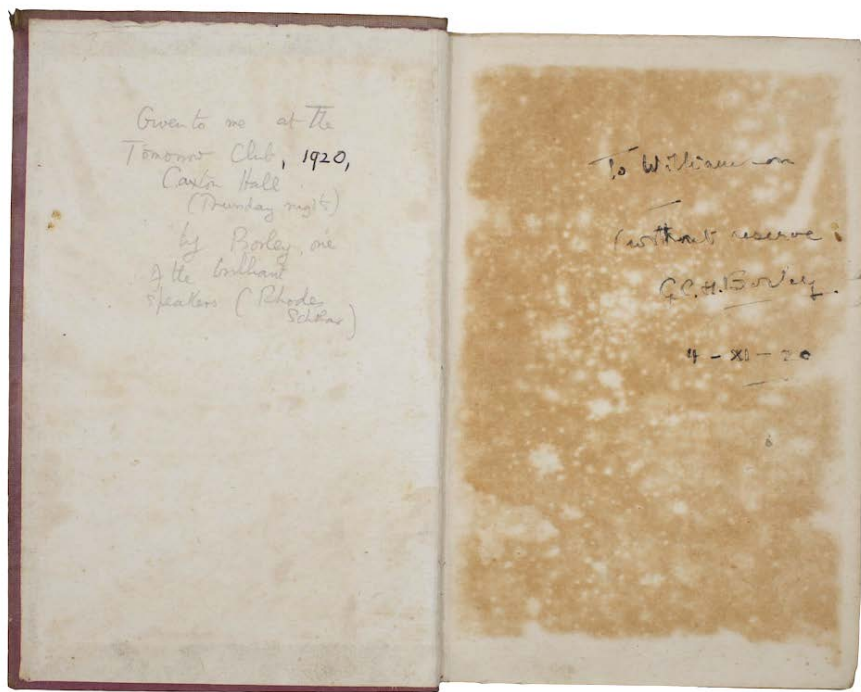 Given to me at the
Tomorrow Club, 1920,
Caxton Hall
(Thursday night)
by Borley, one
of the brilliant
speakers (Rhodes
Scholar)
To Williamson
(without reserve
G.C.H. Borley.
4 - XI - 20